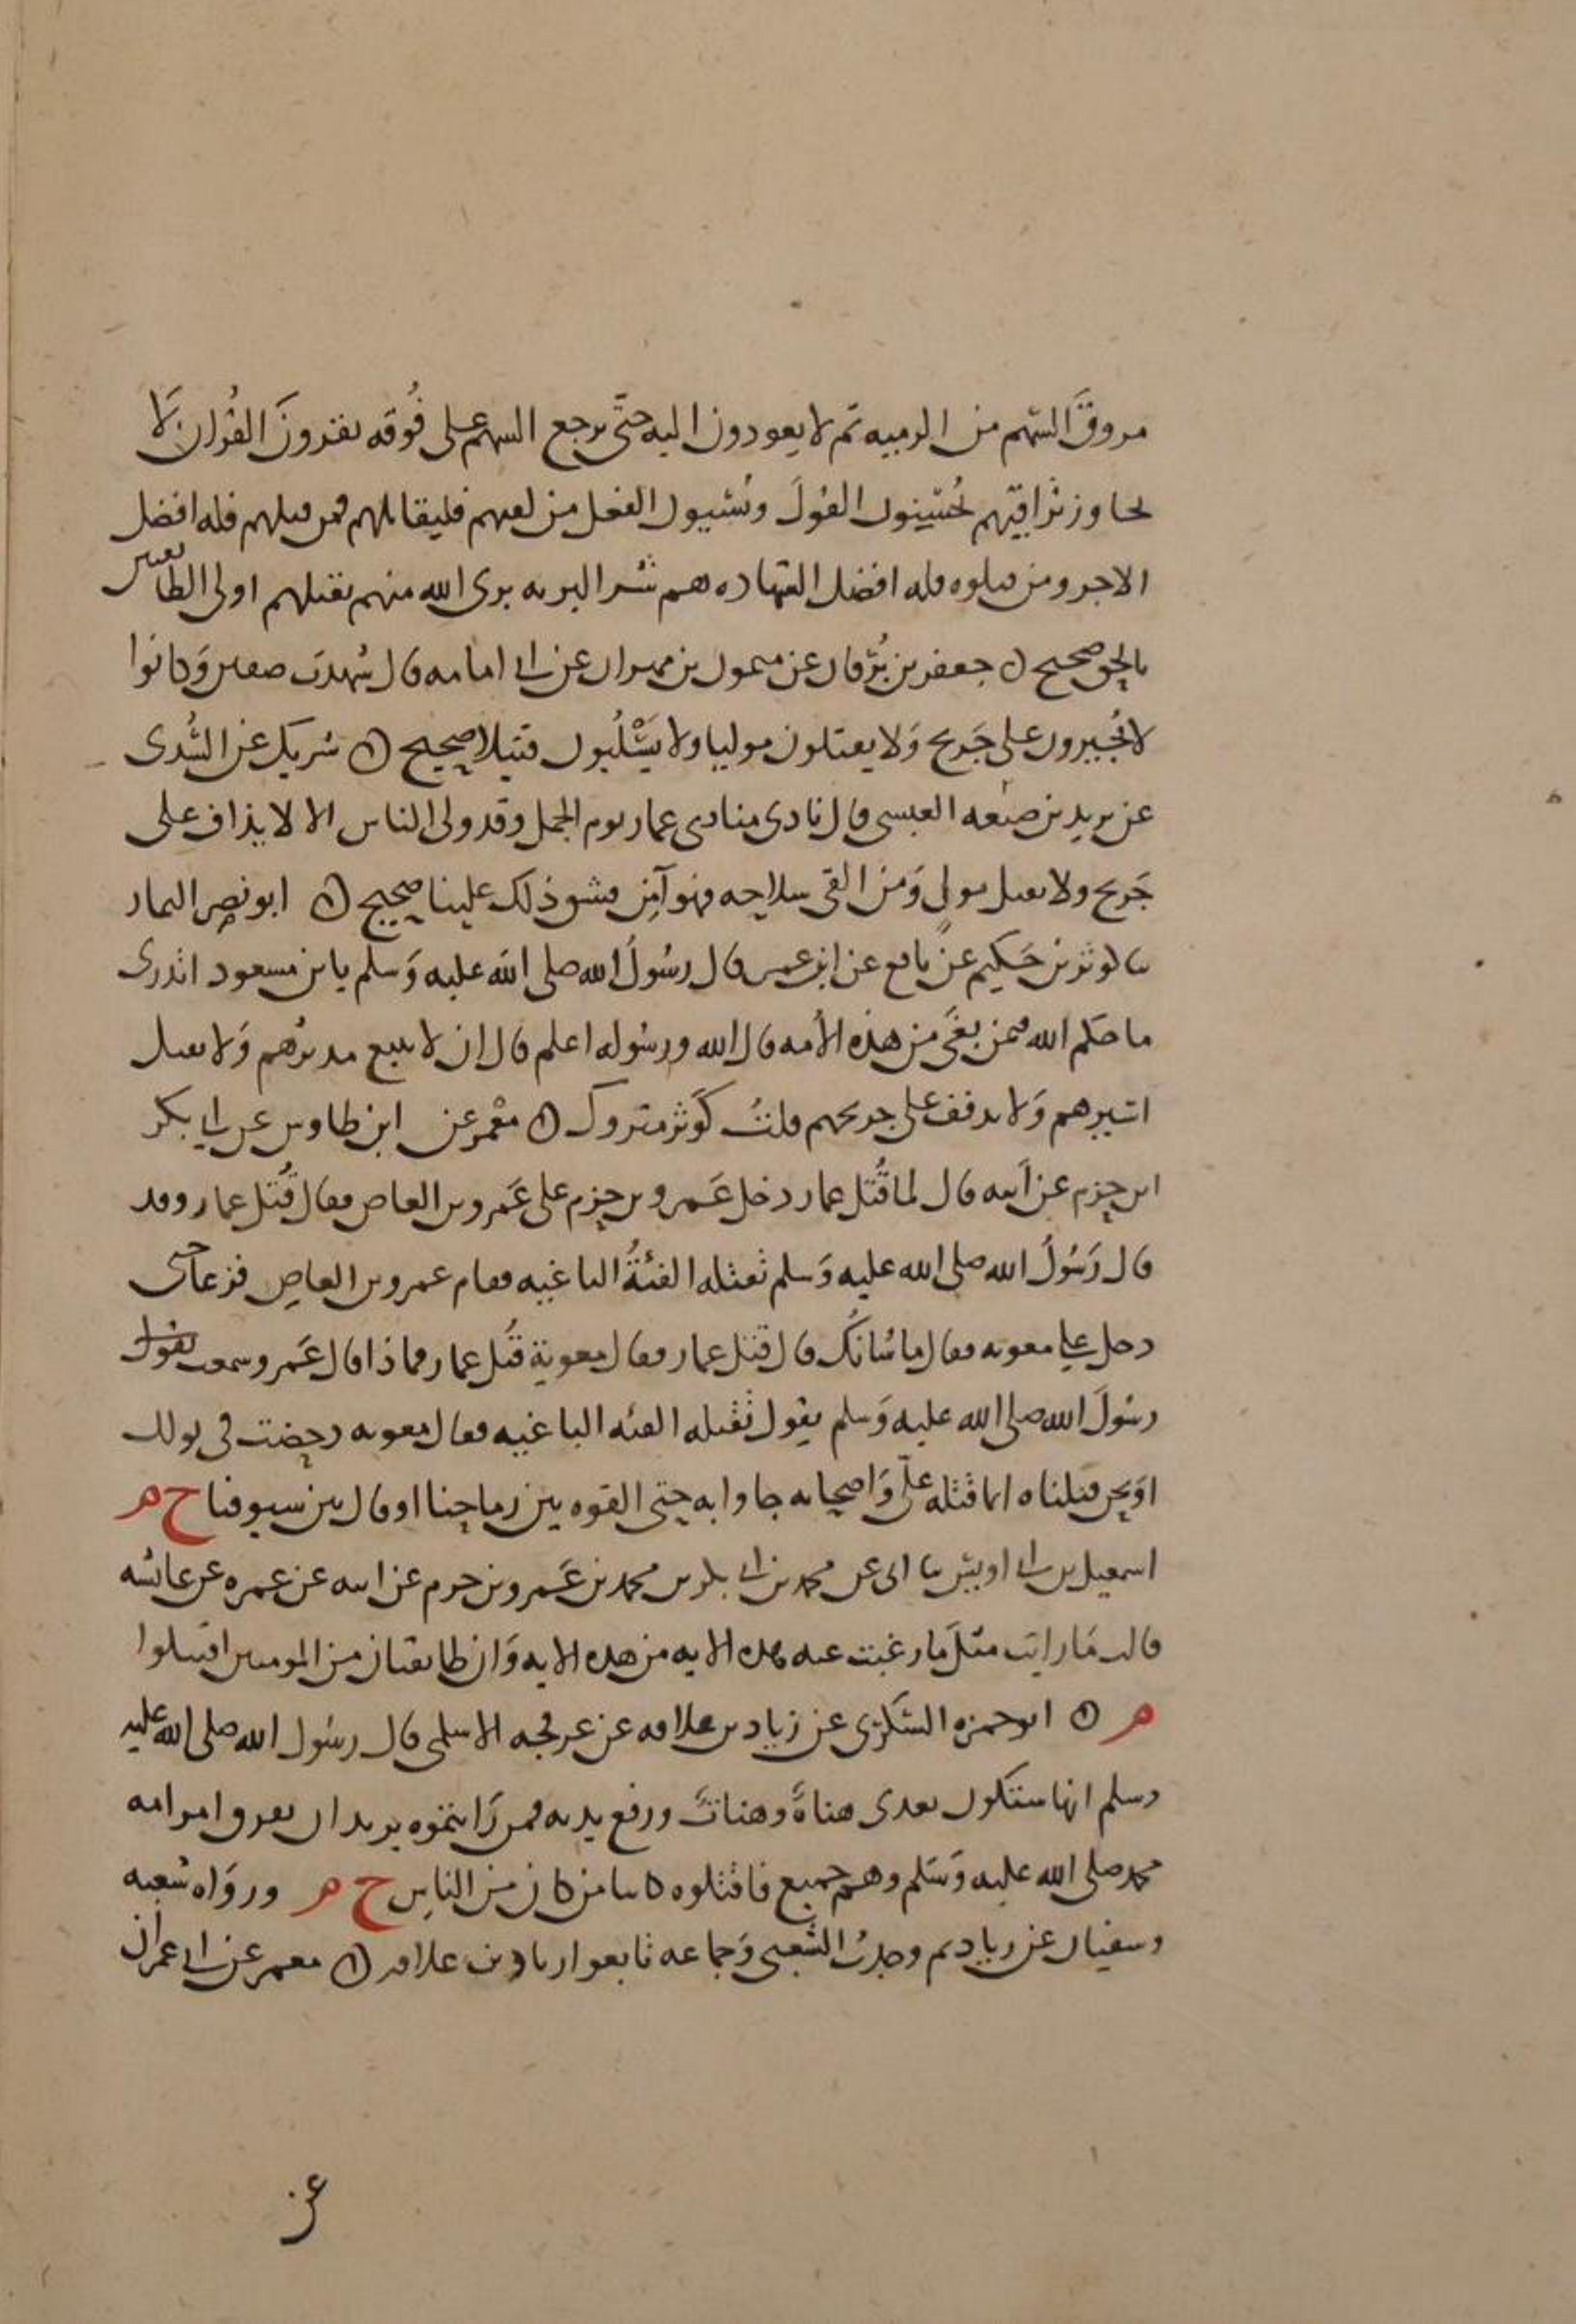 مروق السهم من الرميه ثم لا يعودون اليه حتى يرجع السهم على فوقه يقرون القران لا
يجاوز تراقيهم يحسنون القول ويسيون الفعل من لقيهم فليقاتلهم فمن قتلهم فله افضل
الاجر ومن قتلوه فله افضل الشهاده هم شر البريه برى الله منهم بقتلهم اولى الطائفتين
بالحق صحيح ○ جعفر بن برقان عن ميمون بن مهران عن ابي امامه قال شهدت صفين وكانوا
لا يجيزون على جريح ولا يقتلون موليا ولا يسلبون قتيلا صحيح ○ شريك عن السدى
عن يزيد بن ضبيعه العبسى قال نادى منادى عمار يوم الجمل وقد ولى الناس الا لا يذاف على
جريح ولا يقتل مولي ومن القى سلاحه فهو آمن فشق ذلك علينا صحيح ○ ابو نصر التمار
ثنا كوثر بن حكيم عن نافع عن ابن عمر قال رسول الله صلى الله عليه وسلم يا بن مسعود اتدرى
ما حكم الله فيمن بغى من هذه الأمه قال الله ورسوله اعلم قال ان لا يتبع مدبرهم ولا يقتل
اسيرهم ولا يدفف على جريحهم قلت كوثر متروك ○ معمر عن ابن طاوس عن ابي بكر
ابن حزم عن ابيه قال لما قتل عمار دخل عمرو بن حزم على عمرو بن العاص فقال قتل عمار وقد
قال رسول الله صلى الله عليه وسلم تقتله الفئة الباغيه فقام عمرو بن العاص فزعا حتى
دخل على معويه فقال ما شانك قال قتل عمار فقال معوية قتل عمار فماذا قال عمرو سمعت يقول
رسول الله صلى الله عليه وسلم يقول تقتله الفئه الباغيه فقال معويه دحضت في بولك
او نحن قتلناه انما قتله على واصحابه جاوا به حتى القوه بين رماحنا او قال بين سيوفنا خ م
اسمعيل بن ابي اويس ثنا ابى عن محمد بن ابي بكر بن محمد بن عمرو بن حزم عن ابيه عن عمره عن عائشه
قالت ما رايت مثل ما رغبت عنه هذه الايه من هذه الايه وان طايفتان من المومنين اقتتلوا
م ○ ابو حمزه السكرى عن زياد بن علاقه عن عرفجه الاسلمى قال رسول الله صلى الله عليه
وسلم انها ستكون بعدى هناة وهنات ورفع يديه فمن رايتموه يريد ان يفرق امر امه
محمد صلى الله عليه وسلم وهم جميع فاقتلوه كاينا من كان من الناس خ م ورواه شعبه
وسفيان عن زياد ثم وجدت الشعبى وجماعه تابعوا زياد بن علاقه ○ معمر عن ابي عمران
عن